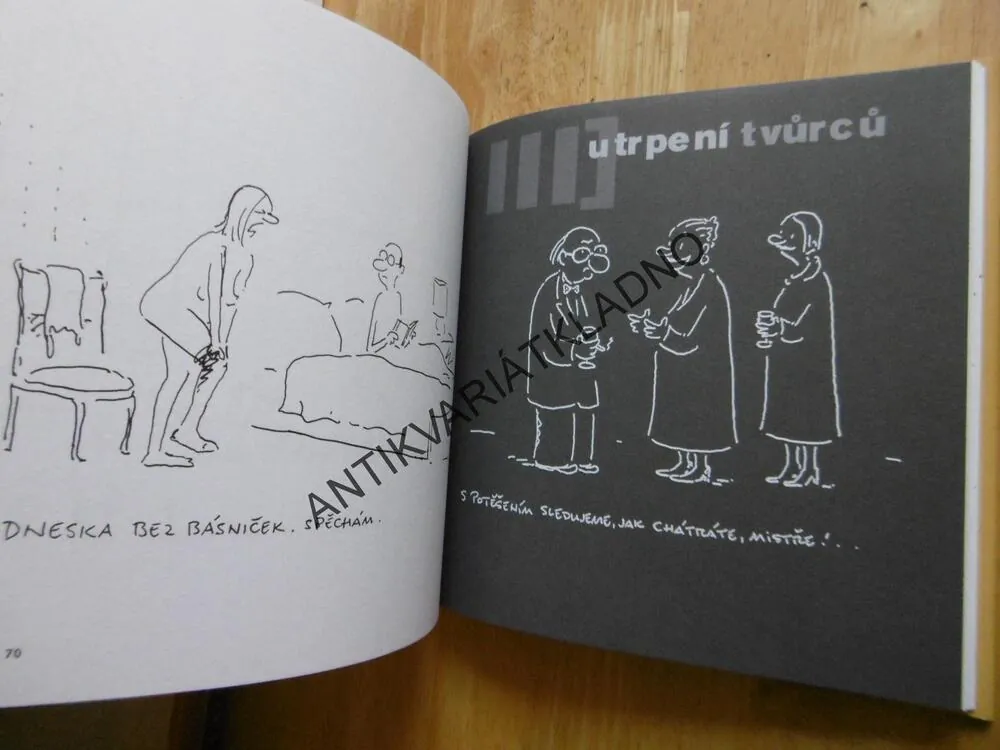 DNESKA BEZ BÁSNIČEK. SPĚCHÁM.
70
III] utrpení tvůrců
S POTĚŠENÍM SLEDUJEME, JAK CHÁTRÁTE, MISTŘE!...
ANTIKVARIÁTKLADNO